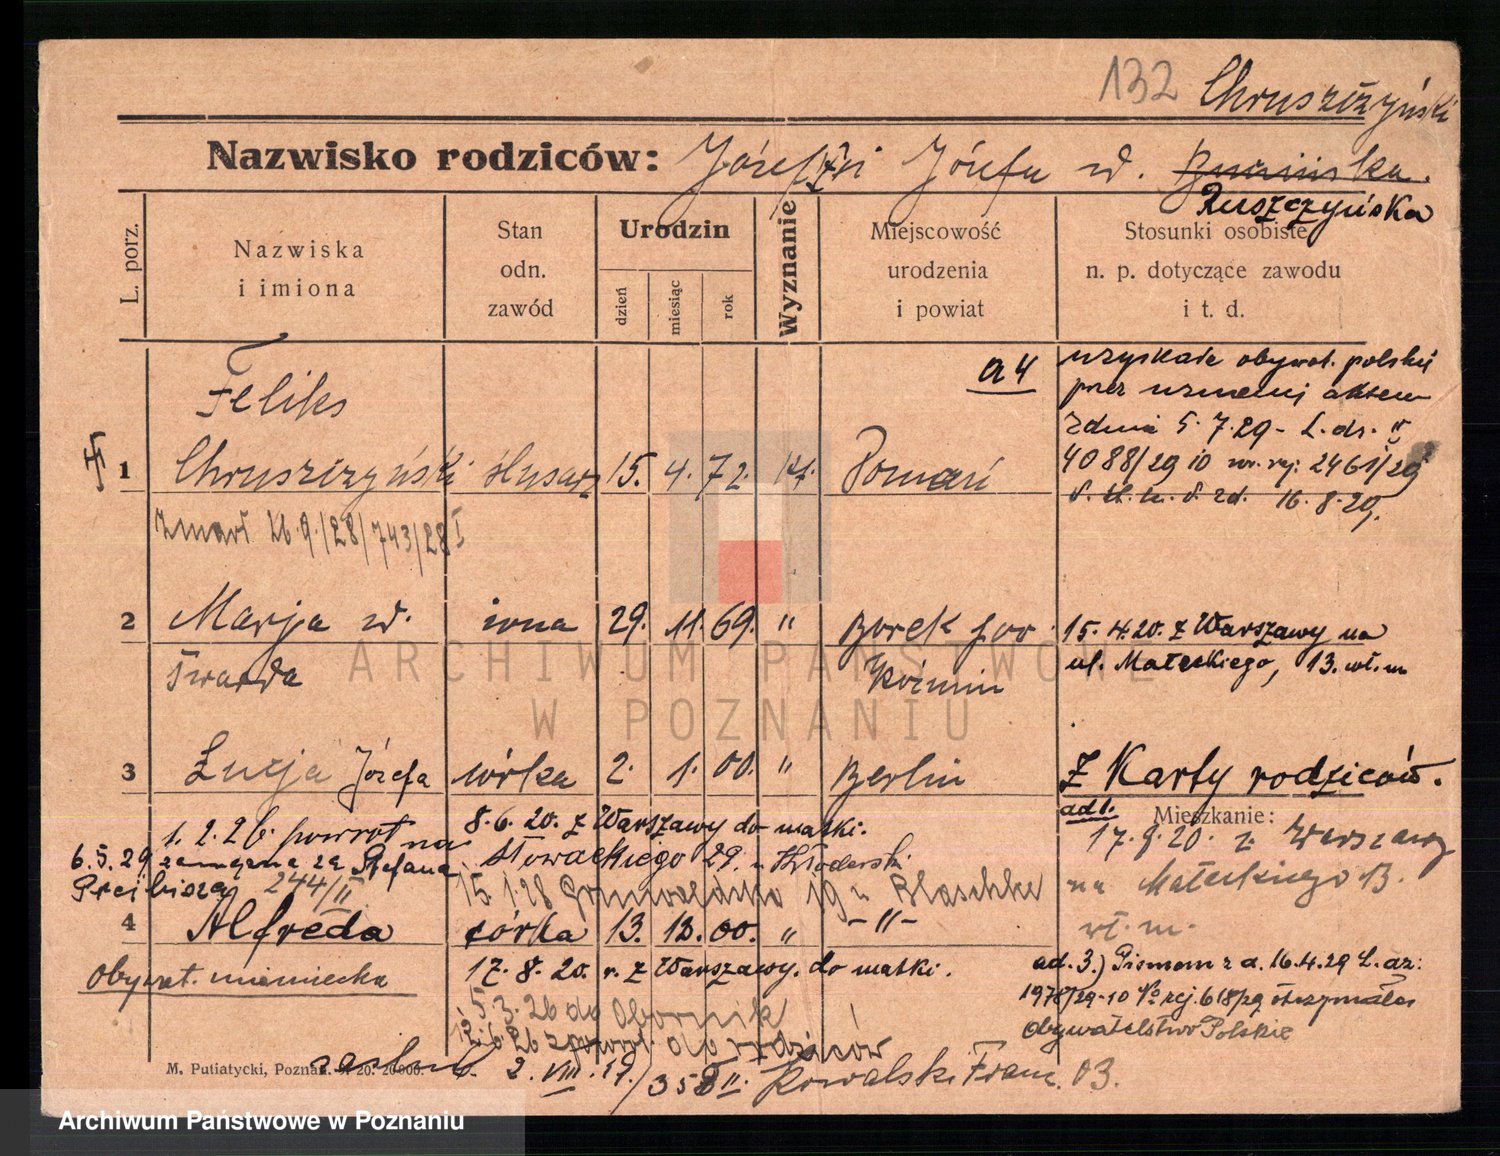 132 Chruszczyński
Nazwisko rodziców: Józef i Józefa z d.
Ruszczyńska
L. porz.
Nazwiska
i imiona
Stan
odn.
zawód
Urodzin
dzień
miesiąc
rok
Wyznanie
Miejscowość
urodzenia
i powiat
Stosunki osobiste
n. p. dotyczące zawodu
i t. d.
a 4
uzyskała obywat. polskie
przez uznanie aktem
z dnia 5.7.29 - L. dz. II
4088/29 10 nr. rej: 2461/29
zd. 16.8.29.
Feliks
1 Chruszczyński ślusarz 15. 4. 72. Poznań
Zmarł 26.9./28/743/28 I
2 Marja z d. żona 29. 11. 69. " Borek pow.
Twarda Koźmin
15.4.20. z Warszawy na
ul. Małeckiego, 13. wł. m
3 Łucja Józefa córka 2. 1. 00. " Berlin
Z Karty rodziców.
1.2.26. powrot na
6.5.29 zamężna za Stefana
244/II
8.6.20. z Warszawy do matki.
Słowackiego 29.
15.1.28 Grunwaldzka 19 u Blaschke
ad 1. Mieszkanie:
17.9.20. z Warszawy
na Małeckiego 13.
wł. m.
4 Alfreda córka 13. 12. 00. " -"-
Obywat. niemiecka
17.8.20. r. z Warszawy. do matki.
5.3.26 do Obornik
6 26 z powrot. do rodziców
ad. 3.) Pismem z d. 16.4.29 L. dz:
1978/29-10 No rej. 618/29 otrzymała
Obywatelstwo Polskie
M. Putiatycki, Poznań. 9. 20. 20000.
2. VIII. 19 / 358 II. Kowalski Franc. 03.
ARCHIWUM PAŃSTWOWE
W POZNANIU
Archiwum Państwowe w Poznaniu